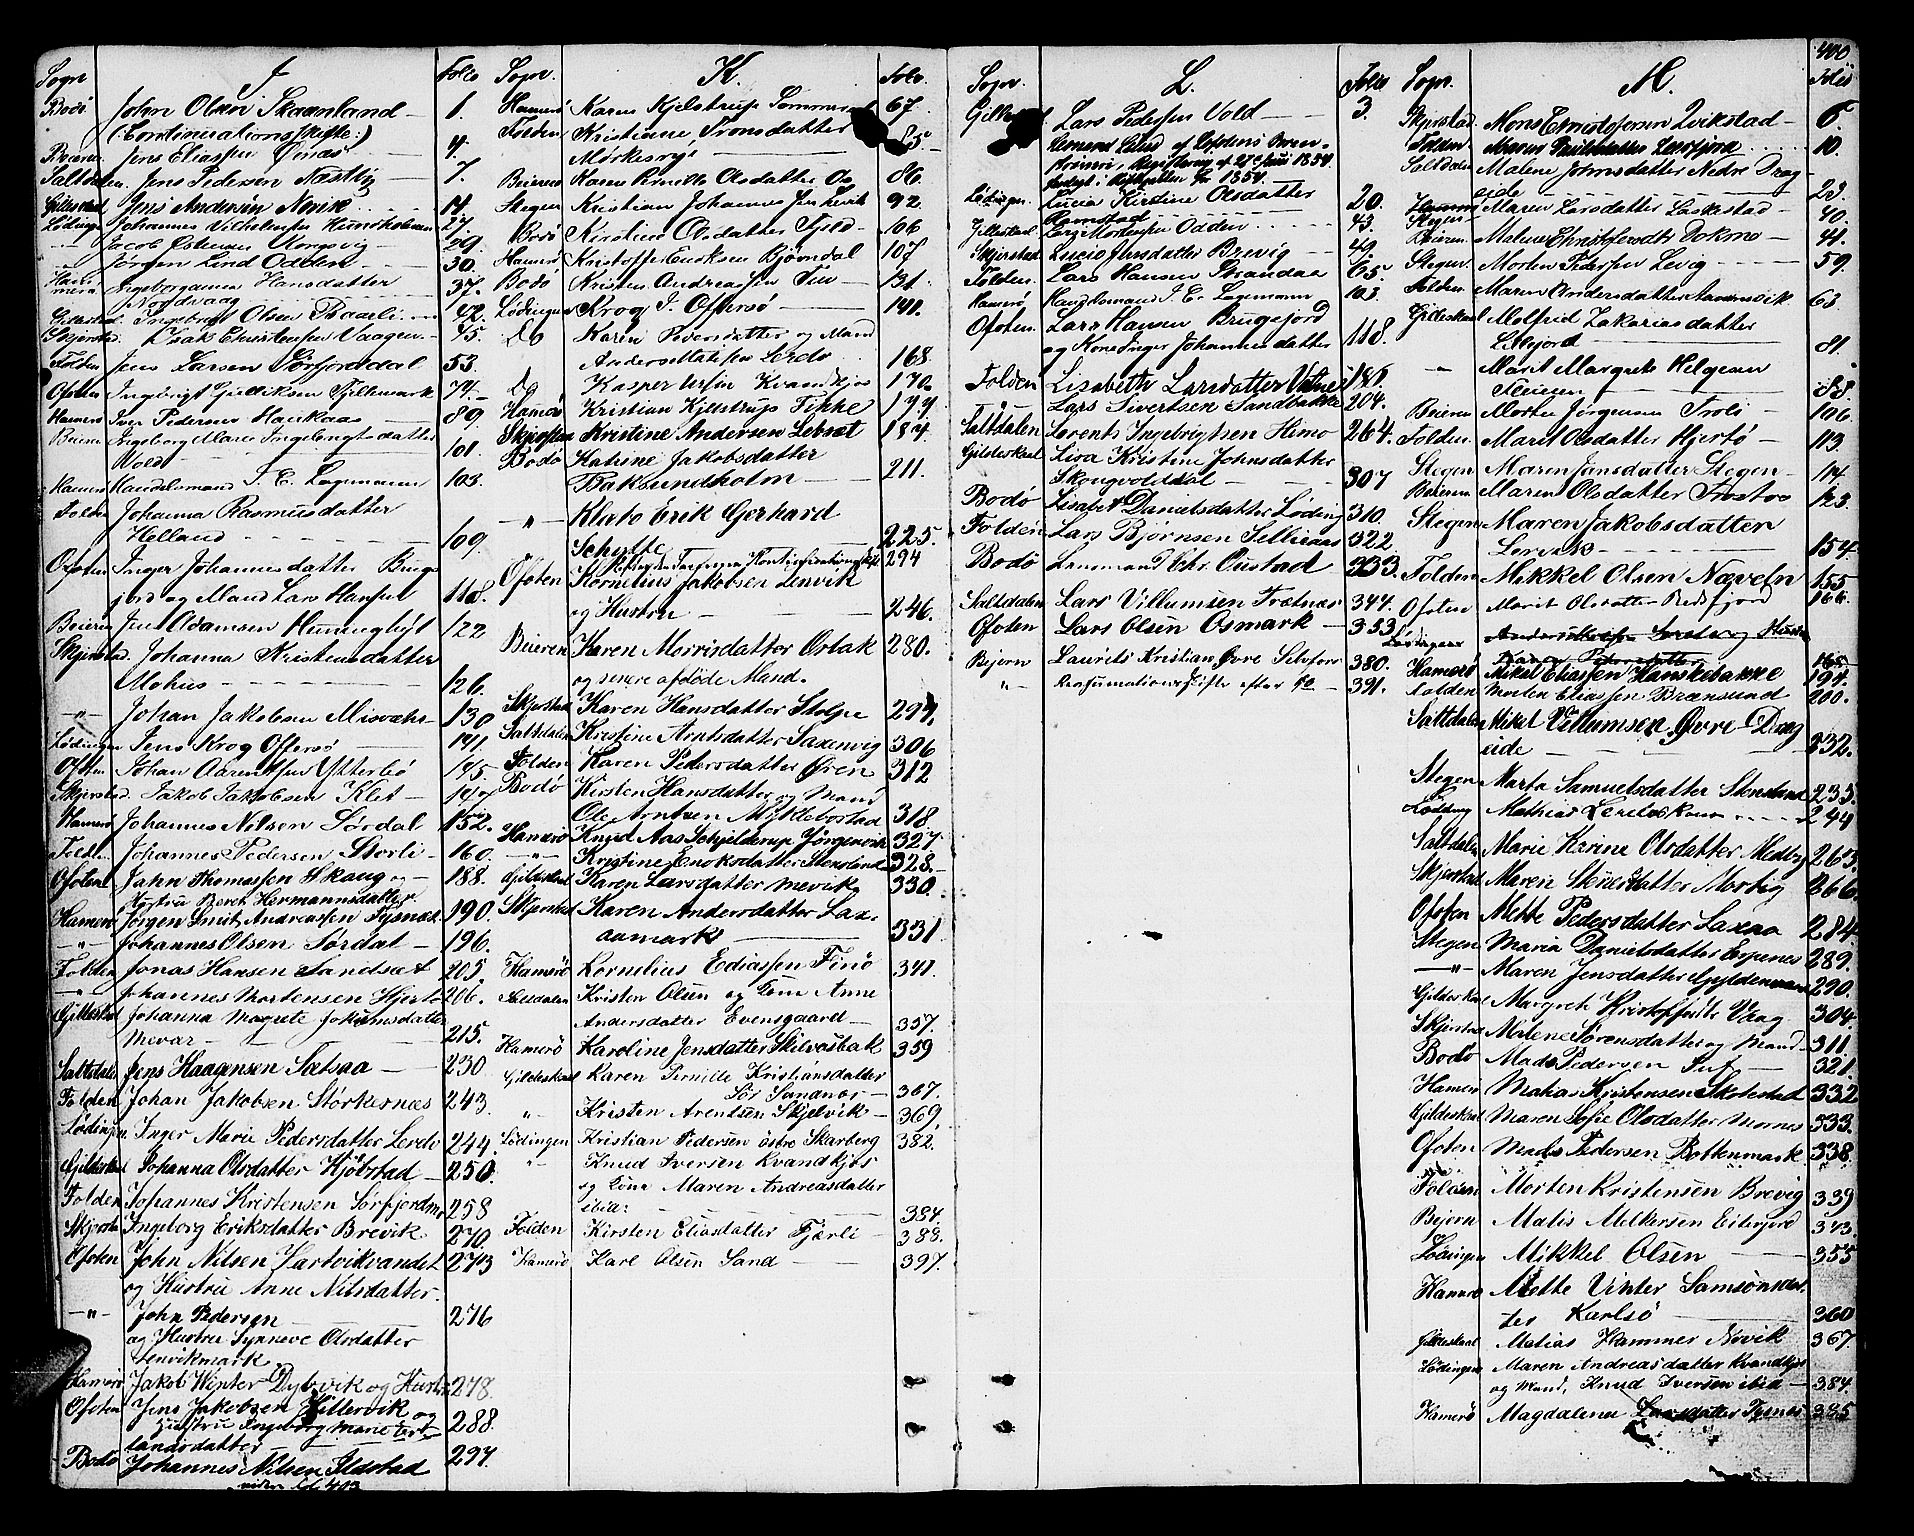 Sogn J. Folio
Bodö John Olsen Skaanland 1.
(Continuationsskifte:)
Beieren Jens Eliassen Osnæs 4.
Saltdalen Jens Pedersen Næstby 7.
Gildeskaal Jens Andersen Nevik 14.
Lödingen Johannes Vilhelmsen Hundholmen 27.
—"— Jacob Estensen Kongsvig 29.
—"— Jörgen Lind Odden 30.
Hammerö Ingeborganna Hansdatter 37.
Nordvaag
Gildeskaal Ingebrigt Olsen Paarli 42.
Skjerstad Isak Christensen Vaagan 45.
Folden Jens Larsen Sörfjorddal 53.
Ofoten Ingebrigt Gulliksen Fjellmark 74.
Hamerö Iver Pedersen Haukaas 89.
Beieren Ingeborg Maria Ingebrigtsdatter
Vold 101.
Hamerö Handelsmand J. E. Lagemann 103.
Folden Johanna Rasmusdatter
Helland 109.
Ofoten Inger Johannesdatter Brugs-
jord og Mand Lars Hansen 118.
Beieren Jens Adamsen Huminghöyt 122
Skjerstad Johanna Kristensdatter
Mohus 126.
—"— Johan Jakobsen Misvær 130
Lödingen Jens Krog Offersö 141.
Ofoten Johan Aarentsen Ytterbö 145.
Skjerstad Jakob Jakobsen Klet 147
Hamerö Johannes Nilsen Sördal 152.
Folden Johannes Pedersen Storli 160.
Ofoten John Thomassen Skaug og 188.
Hustru Beret Hermannsdatter
Hamerö Jörgen Smit Andreassen Tysnæs 190.
—"— Johannes Olsen Sördal 196.
Folden Jonas Hansen Sandsæt 205.
—"— Johannes Mortensen Hjertö 206.
Gildeskaal Johanna Magrete Jokumsdatter
Mevær 215.
Saltdalen Jens Haagensen Sætsaa 230
Folden Johan Jakobsen Storkersnæs 243.
Lödingen Inger Marie Pedersdatter Lerdö 244.
Gildeskaal Johanna Olsdatter Kjöbstad 250.
Folden Johannes Kristensen Sörfjordmo 258
Skjerstad Ingeborg Eriksdatter Brevik 270.
Ofoten John Nilsen Hartvikvandet 273
og Hustru Anne Nilsdatter.
—"— John Pedersen 276
og Hustru Synneve Olsdatter
Lenvikmark.
Hamerö Jakob Winter Dybvik og Hustru 278.
Ofoten Jens Jakobsen Hillervik og 288.
Hustru Ingeborg Marie Er-
landsdatter
Bodö Johannes Nilsen Ildstad 297.
Sogn. K. Folio.
Hamerö Karen Kjelstrup Sommer 67.
Folden Kristiane Tronsdatter 85
Mörkesvig
Beieren Karen Pernille Olsdatter Os 86.
Stegen Kristian Johannes Jenssen Leervik 92.
Bodö Kirstine Olsdatter Fjeld 106
Hamerö Kristoffer Enoksen Björndal 107
Bodö Kristen Andreassen Tuv 131.
Lödingen Krog J. Offersö 141.
Do Karen Pedersdatter og Mand
Anders Matisen Lerdö 168.
Do Kasper Ursin Kvandkjos 170.
Hamerö Kristian Kjelstrup Fikke 177.
Skjerstad Kristine Andersen Lebsæt 184.
Bodö Katrine Jakobsdatter
Baksundholm 211.
—"— Klato Erik Gerhard
Schytte 225.
294
Ofoten Kornelius Jakobsen Lenvik
og Hustru 246.
Beieren Karen Morrisdatter Osbak 280.
og senere afdöde Mand.
Skjerstad Karen Hansdatter Stolpe 297.
Saltdalen Kristine Arntsdatter Saxenvig 306
Folden Karen Pedersdatter Ören 312
Bodö Kirsten Hansdatter og Mand
Ole Arntsen Myklebostad 318
Hamerö Knud Aas Schjelderup Jörgensen 327.
—"— Kristine Enoksdatter Stensland 328.
Gildeskaal Karen Larsdatter Mevik 330.
Skjerstad Karen Andersdatter Lax-
aamark 331
Hamerö Kornelius Ediassen Finö 341.
Saltdalen Kristen Olsen og Kona Anne
Andersdatter Evensgaard 357.
Hamerö Karoline Jensdatter Skilvasbak 359
Gildeskaal Karen Pernille Kristiansdatter
Sör Sandnæs 367.
—"— Kristen Arentsen Skjelvik 369.
Lödingen Kristian Pedersen östre Skarberg 382.
—"— Knud Iversen Kvandkjos
og Kona Maren Andreasdatter
ibid: 384.
Folden Kirsten Eliasdatter Fjærli 388.
Hamerö Karl Olsen Sand 397.
Sogn. L. Folio
Gilde Lars Pedersen Vold 3.
Registrering af 27de Juni 1854.
Lödingen Lucia Kirstine Olsdatter 20.
Hamstad
Gildeskaal Lars Mortensen Odden 43.
Skjerstad Lucie Jensdatter Brevig 49.
Folden Lars Hansen Strandaa 65
Hamerö Handelsmand J. E. Lagemann 103
Ofoten Lars Hansen Brugejord
og Kone Inger Johannesdatter 118.
Folden Lisabeth Larsdatter Vatne 181.
Lars Sivertsen Sandbakke 204.
Saltdalen Lorents Ingebrigtsen Himo 264.
Gildeskaal Lisa Kristine Johnsdatter
Skougvolddal 307
Bodö Lisabet Danielsdatter Löding 310.
Folden Lars Björnsen Sellienaas 322
Bodö Lensmand Chr. Oustad 333.
Saltdalen Lars Villumsen Trætnæs 344.
Ofoten Lars Olsen Osmark 353
Bejern Laurits Kristian Övre Selsfors 380.
—"— Resumationsskifte efter do 391.
400
Sogn. M. Folio
Skjerstad Mons Christofersen Kvikstad 6.
Folden Maren Paulsdatter Leifjord 10.
Saltdalen Malene Johnsdatter Nedre Drag-
eide 23.
Stegen Maren Larsdatter Laskestad 40.
Beieren Malene Christofersdtr Dokmo 41.
Stegen Morten Pedersen Levig 59.
Folden Maren Andersdatter 63.
Gildeskaal Molfrid Zakariasdatter
Leifjord 81.
—"— Marit Margrete Helgesen
88.
Beieren Morten Jörgensen Troli 106
Folden Marit Olsdatter Hjertö 113.
Stegen Maren Jensdatter Stegen 114.
Beieren Maren Olsdatter Trostvo 123.
Stegen Maren Jakobsdatter
Lervik 154
Folden Mikkel Olsen Nævelsn 155
Ofoten Marit Olsdatter Beisfjord 166.
Lödingen 165
Hamerö Mikal Eliassen Hanskebakke 194.
Folden Morten Eliassen Brænsund 200.
Saltdalen Mikel Villumsen Övre Drag
eide 232.
Stegen Marta Samuelsdatter Stensland 233.
Lödding Mathias 244
Saltdalen Marie Karine Olsdatter Medby 263.
Skjerstad Maren Steensdatter Mortig 266
Ofoten Mette Pedersdatter Laxaa 284.
Stegen Maria Danielsdatter Erpenes 289.
—"— Maren Jensdatter Gyldenvand 290.
Gildeskaal Margrete Kristoffersdtr Vaag 304.
Skjerstad Malene Sörensdatter og Mand 311.
Bodö Mads Pedersen Tuf 321.
Hamerö Matias Kristensen Skotstad 332
Gildeskaal Maren Sofie Olsdatter Mornes 333.
Ofoten Mads Pedersen Bottenmark 338.
Folden Morten Kristensen Brevig 339
Bejern Matis Melkersen Eiterjord 343.
Lödingen Mikkel Olsen 355
Hamerö Mette Vinter Samsönsdat-
ter Karlsö 360
Gildeskaal Matias Hammer Növik 367.
Lödingen Maren Andreasdatter Kvandkjos
og Mand, Knud Iversen ibid 384.
Hamerö Magdalena Larsdatter Tysnes 385